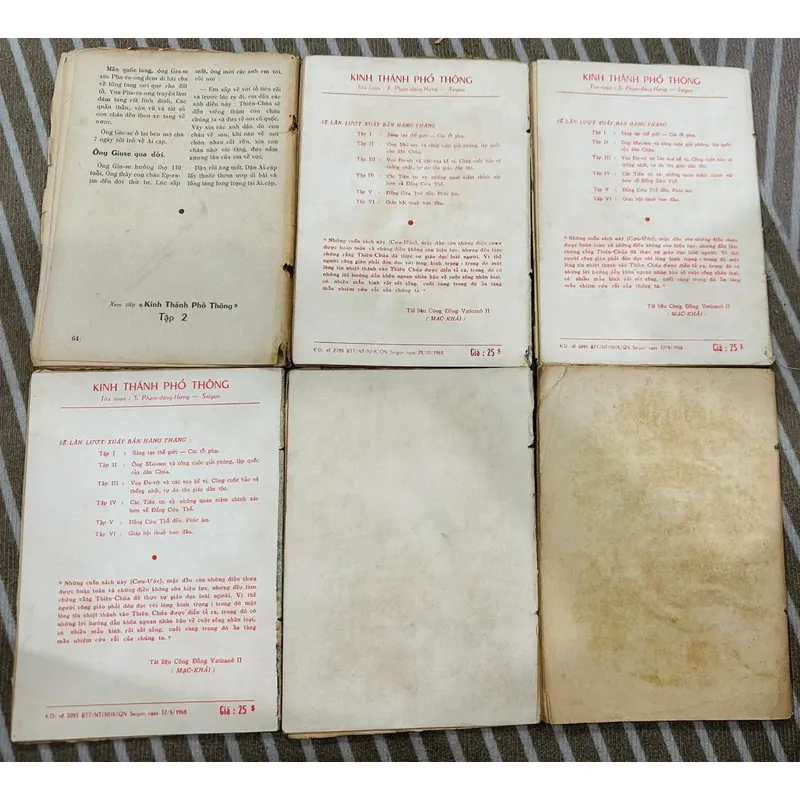 Mãn quốc tang, ông Giu-se
xin Pha-ra-ông đem di hài cha
về tổng táng nơi quê cha đất
tổ. Vua Pha-ra-ong truyền làm
đám táng rất linh đình. Các
quần thần, văn vũ và tất cả
con cháu đều theo xe tang về
nước.
Ông Giu-se ở lại bên mộ cha
7 ngày rồi trở về Ai cập.
Ông Giuse qua đời.
Ông Giu-se hưởng thọ 110
tuổi. Ông thấy con cháu Ep-ra-
im đến đời thứ tư. Lúc sắp
mất, ông mới các anh em tới,
rồi nói
— Em sắp về với tổ tiên rồi
và trước lúc ra đi, em dặn các
anh điều này : Thiên-Chúa sẽ
đến viếng thăm con cháu
chúng ta và đưa về nơi cố quốc.
Vậy xin các anh dặn dò con
cháu về sau, khi nào về nơi
chôn nhau cắt rốn, xin con
cháu nhớ cải táng, đưa nắm
xương tàn của em về với.
Dặn rồi ông mất. Dân Ai-cập
lấy thuốc thơm ướp di hài và
tống táng long trọng tại Ai-cập.
Xem tiếp «Kinh Thánh Phổ Thông»
Tập 2
64
KINH THÁNH PHỔ THÔNG
Tòa soạn : 5 Phạm-đăng-Hưng — Saigon
SẼ LẦN LƯỢT XUẤT BẢN HÀNG THÁNG :
Tập I : Sáng tạo thế giới — Các tổ phụ.
Tập II : Ông Mai-sen và công cuộc giải phóng, lập quốc
của dân Chúa.
Tập III : Vua Đa-vít và các vua kế vị. Công cuộc bảo vệ
thống nhất, tự do tôn giáo dân tộc.
Tập IV : Các Tiên tri và những quan niệm chính xác
hơn về Đấng Cứu Thế.
Tập V : Đấng Cứu Thế đến. Phúc âm.
Tập VI : Giáo hội thuở ban đầu.
" Những cuốn sách này (Cựu-Ước), mặc dầu còn những điều chưa
được hoàn toàn và những điều không còn hiệu lực, nhưng đều làm
chứng rằng Thiên-Chúa đã thực sự giáo dục loài người. Vì thế
người công giáo phải đón đọc với lòng kính trọng ; trong đó một
lòng tin nhiệt thành vào Thiên Chúa được diễn tả ra, trong đó có
những lời hướng dẫn khôn ngoan nhân hậu về cuộc sống nhân loại,
có nhiều mẫu kinh rất sốt sắng, cuối cùng trong đó ẩn tàng
mầu nhiệm cứu rỗi của chúng ta. "
Tài liệu Công Đồng Vaticanô II
( MẠC-KHẢI )
K.D. số 2785 BTT/NT/NHK/QN Saigon ngày 29/10/1968
Giá : 25 $
KINH THÁNH PHỔ THÔNG
Tòa soạn : 5 Phạm-đăng-Hưng — Saigon
SẼ LẦN LƯỢT XUẤT BẢN HÀNG THÁNG
Tập I : Sáng tạo thế giới — Các tổ phụ.
Tập II : Ông Mai-sen và công cuộc giải phóng, lập quốc
của dân Chúa.
Tập III : Vua Đa-vít và các vua kế vị. Công cuộc bảo vệ
thống nhất, tự do tôn giáo dân tộc.
Tập IV : Các Tiên tri và những quan niệm chính xác
hơn về Đấng Cứu Thế.
Tập V : Đấng Cứu Thế đến. Phúc âm.
Tập VI : Giáo hội thuở ban đầu.
" Những cuốn sách này (Cựu-Ước), mặc dầu còn những điều chưa
được hoàn toàn và những điều không còn hiệu lực, nhưng đều làm
chứng rằng Thiên-Chúa đã thực sự giáo dục loài người. Vì thế
người công giáo phải đón đọc với lòng kính trọng ; trong đó một
lòng tin nhiệt thành vào Thiên Chúa được diễn tả ra, trong đó có
những lời hướng dẫn khôn ngoan nhân hậu về cuộc sống nhân loại,
có nhiều mẫu kinh rất sốt sắng, cuối cùng trong đó ẩn tàng
mầu nhiệm cứu rỗi của chúng ta. "
Tài liệu Công Đồng Vaticanô II
( MẠC-KHẢI )
K.D. số 2093 BTT/NT/NHK/QN Saigon ngày 17/9/1968
Giá : 25 $
KINH THÁNH PHỔ THÔNG
Tòa soạn : 5 Phạm-đăng-Hưng — Saigon
SẼ LẦN LƯỢT XUẤT BẢN HÀNG THÁNG :
Tập I : Sáng tạo thế giới — Các tổ phụ.
Tập II : Ông Mai-sen và công cuộc giải phóng, lập quốc
của dân Chúa.
Tập III : Vua Đa-vít và các vua kế vị. Công cuộc bảo vệ
thống nhất, tự do tôn giáo dân tộc.
Tập IV : Các Tiên tri và những quan niệm chính xác
hơn về Đấng Cứu Thế.
Tập V : Đấng Cứu Thế đến. Phúc âm.
Tập VI : Giáo hội thuở ban đầu.
" Những cuốn sách này (Cựu-Ước), mặc dầu còn những điều chưa
được hoàn toàn và những điều không còn hiệu lực, nhưng đều làm
chứng rằng Thiên-Chúa đã thực sự giáo dục loài người. Vì thế
người công giáo phải đón đọc với lòng kính trọng ; trong đó một
lòng tin nhiệt thành vào Thiên Chúa được diễn tả ra, trong đó có
những lời hướng dẫn khôn ngoan nhân hậu về cuộc sống nhân loại,
có nhiều mẫu kinh rất sốt sắng, cuối cùng trong đó ẩn tàng
mầu nhiệm cứu rỗi của chúng ta. "
Tài liệu Công Đồng Vaticanô II
( MẠC-KHẢI )
K.D. số 2093 BTT/NT/NHK/QN Saigon ngày 17/9/1968
Giá : 25 $